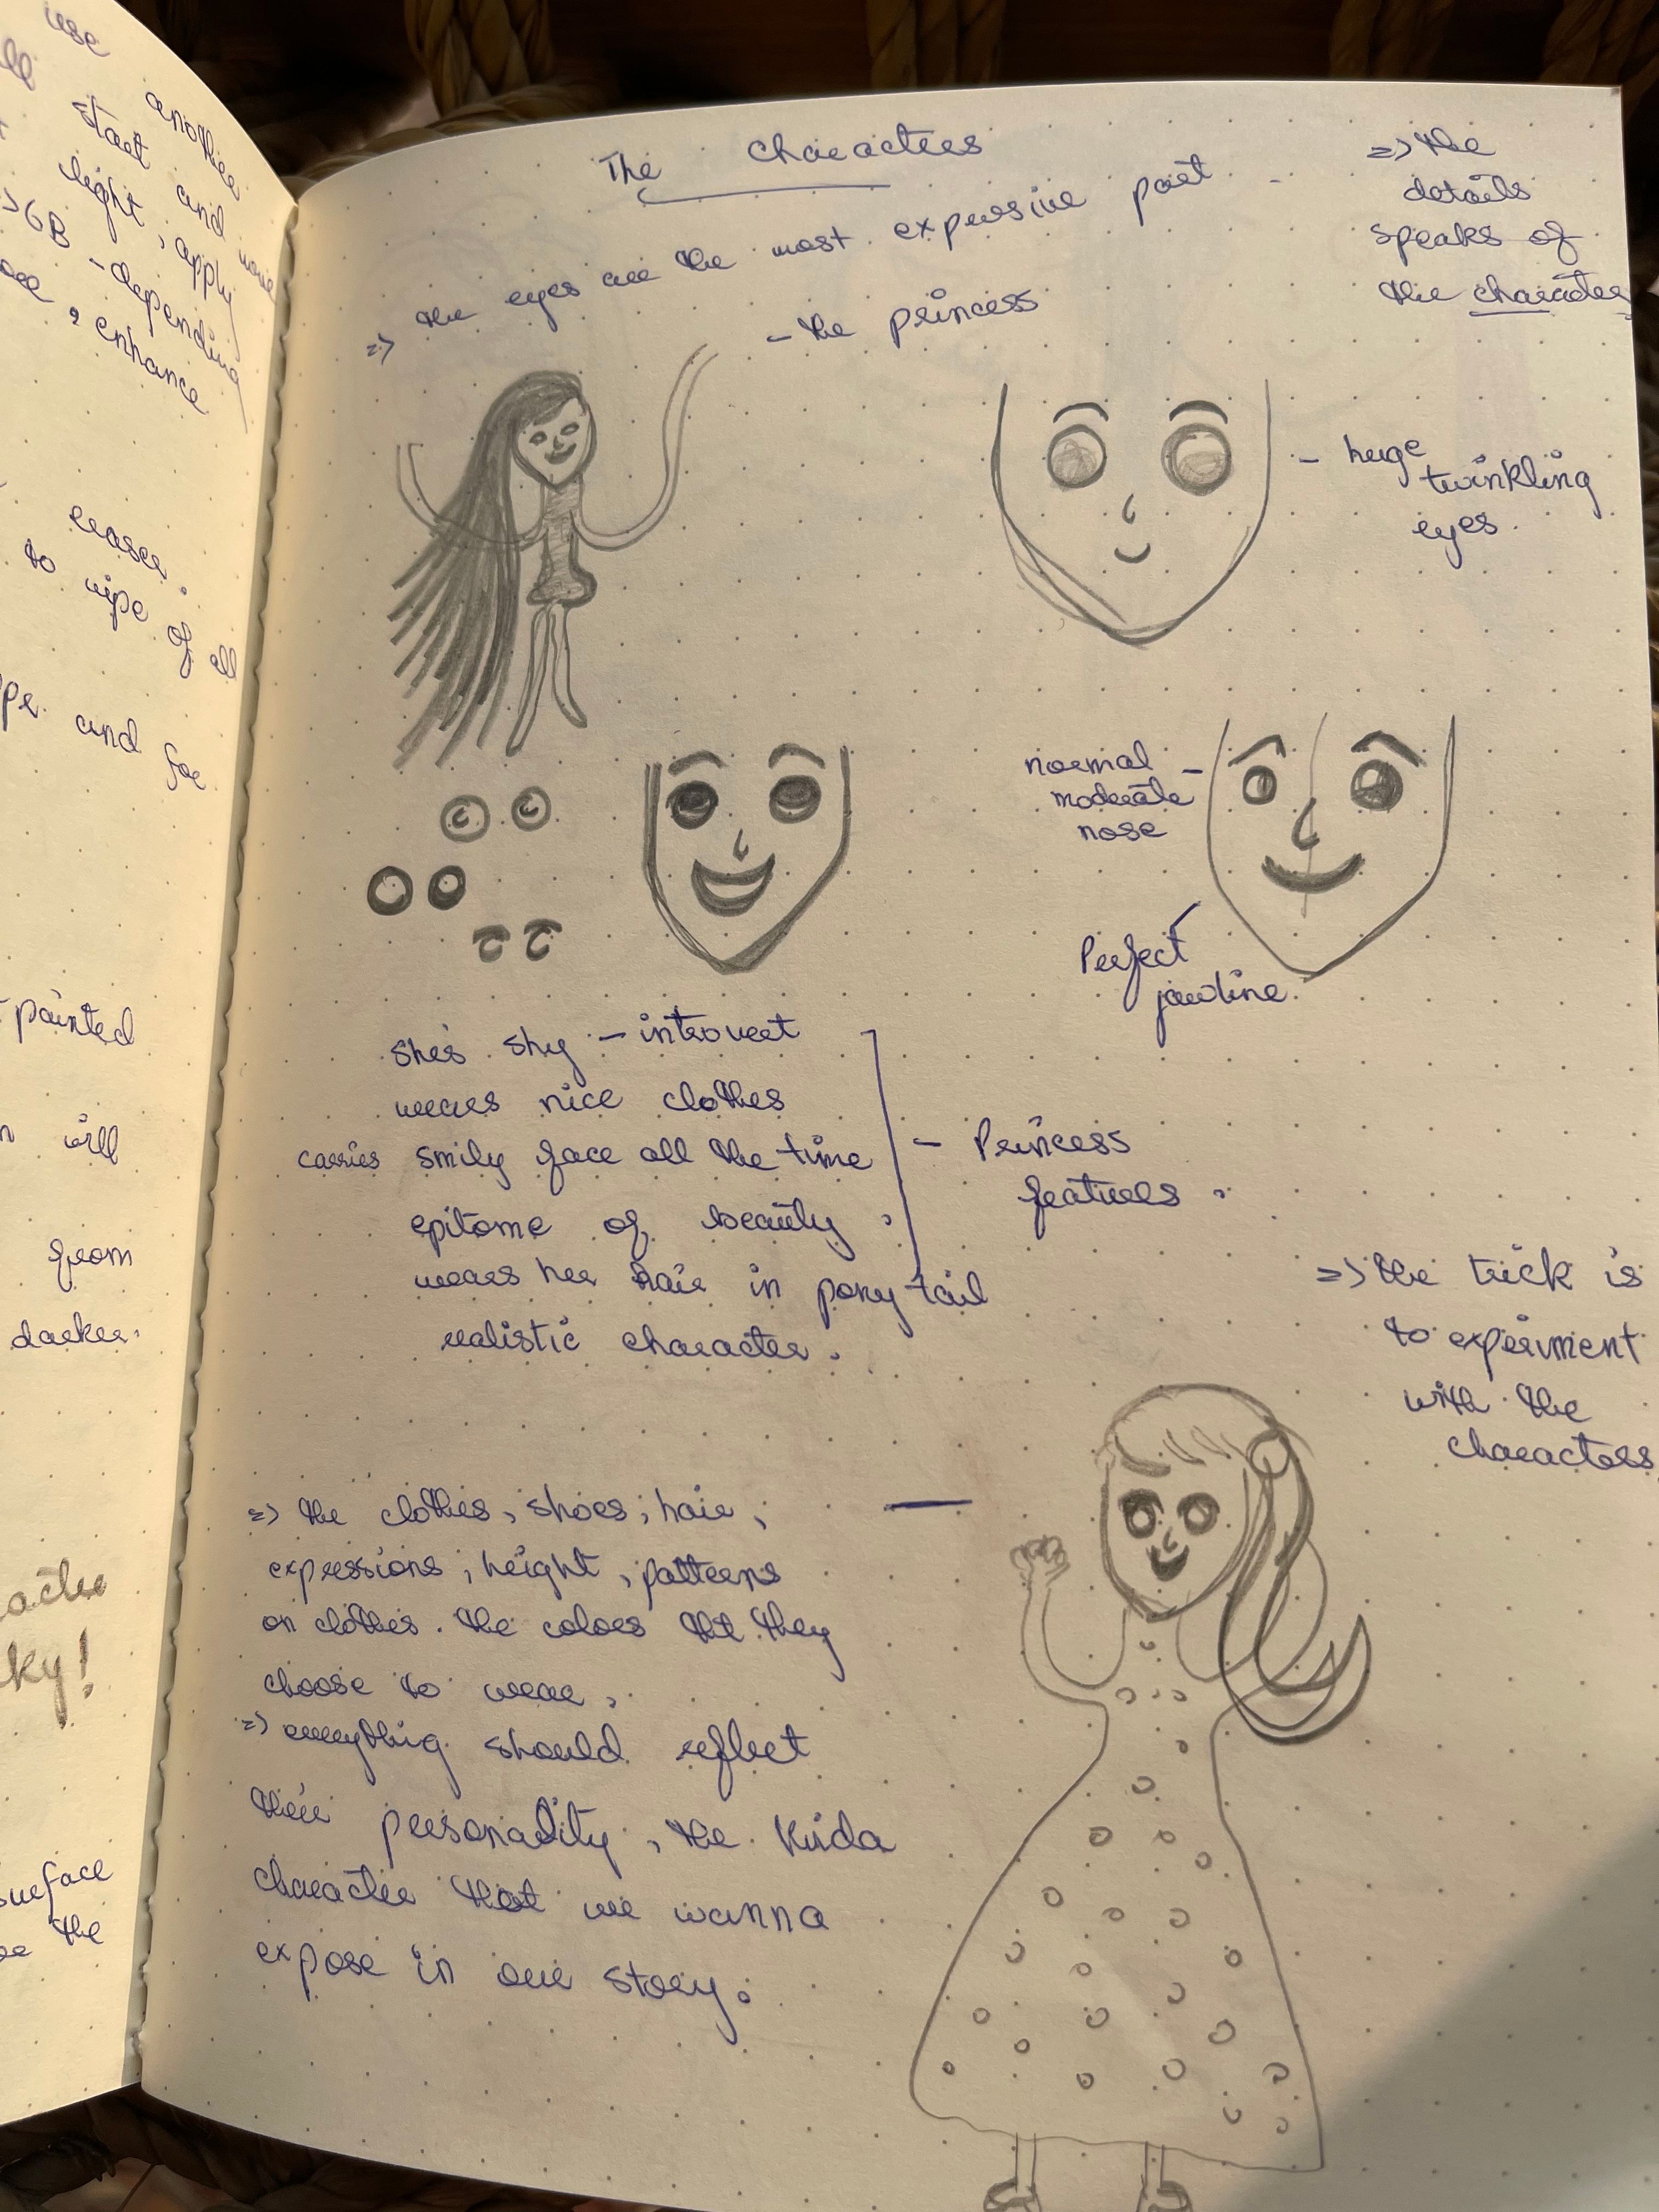 use
another
start and
light, apply
=> 6B - depending
enhance
eraser.
to wipe of all
and for
- painted
will
from
darker.
surface
the
The characters
=> the eyes are the most expressive part
=> the
details
speaks of
the character
- the princess
- huge
twinkling
eyes.
normal -
moderate
nose
Perfect
jawline.
she's shy - introvert
wears nice clothes
carries smily face all the time
epitome of beauty.
wears her hair in pony tail
realistic character.
- Princess
features.
=> the trick is
to experiment
with the
characters
=> the clothes, shoes, hair,
expressions, height, patterns
on clothes. the colors tht they
choose to wear.
=> everything should reflect
their personality, the kinda
character that we wanna
expose in our story.